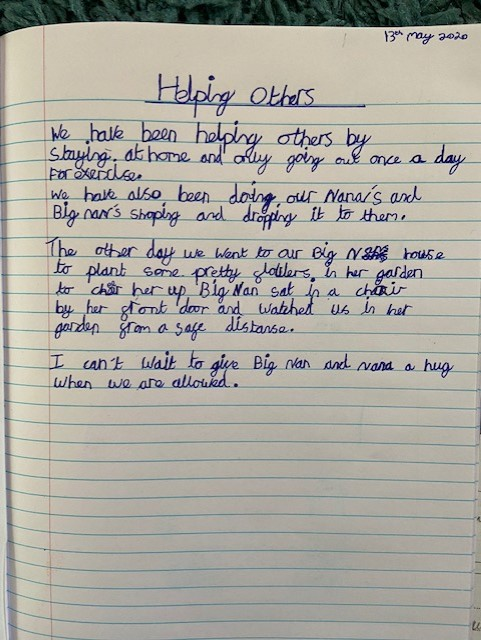 13th May 2020
Helping Others
We have been helping others by
staying. at home and only going out once a day
For exercise.
We have also been doing our Nana's and
Big nan's shoping and dropping it to them.
The other day we went to our Big N house
to plant some pretty flowers in her garden
to her up Big Nan sat in a chair
by her front door and watched us in her
garden from a safe distanse.
I can't wait to give Big Nan and nana a hug
when we are allowed.